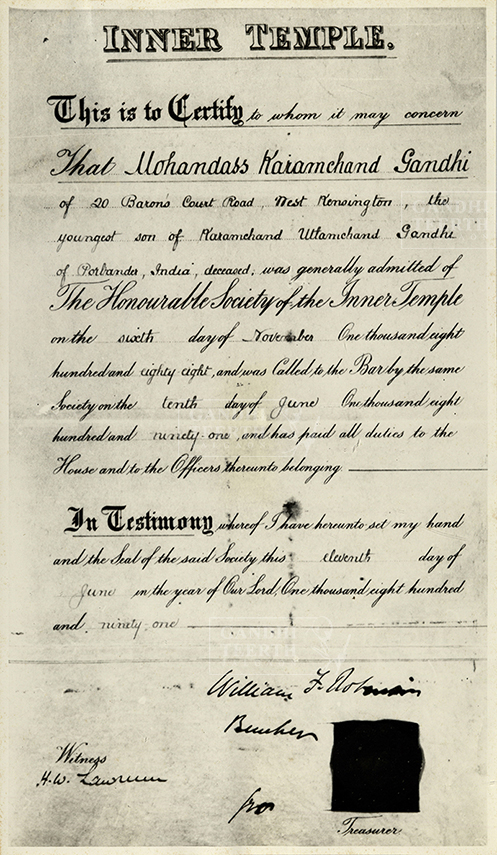 INNER TEMPLE.
This is to Certify to whom it may concern
That Mohandass Karamchand Gandhi
of 20 Baron's Court Road, West Kensington, the
youngest son of Karamchand Uttamchand Gandhi
of Porbandar, India, deceased, was generally admitted of
The Honourable Society of the Inner Temple
on the sixth day of November One thousand eight
hundred and eighty eight, and was Called to the Bar by the same
Society on the tenth day of June One thousand eight
hundred and ninety-one, and has paid all duties to the
House and to the Officers thereunto belonging.
In Testimony whereof I have hereunto set my hand
and the Seal of the said Society this eleventh day of
June in the year of Our Lord, One thousand eight hundred
and ninety-one
William F. Robinson
Bencher
Witness
H. W. Lawrence
pro
Treasurer